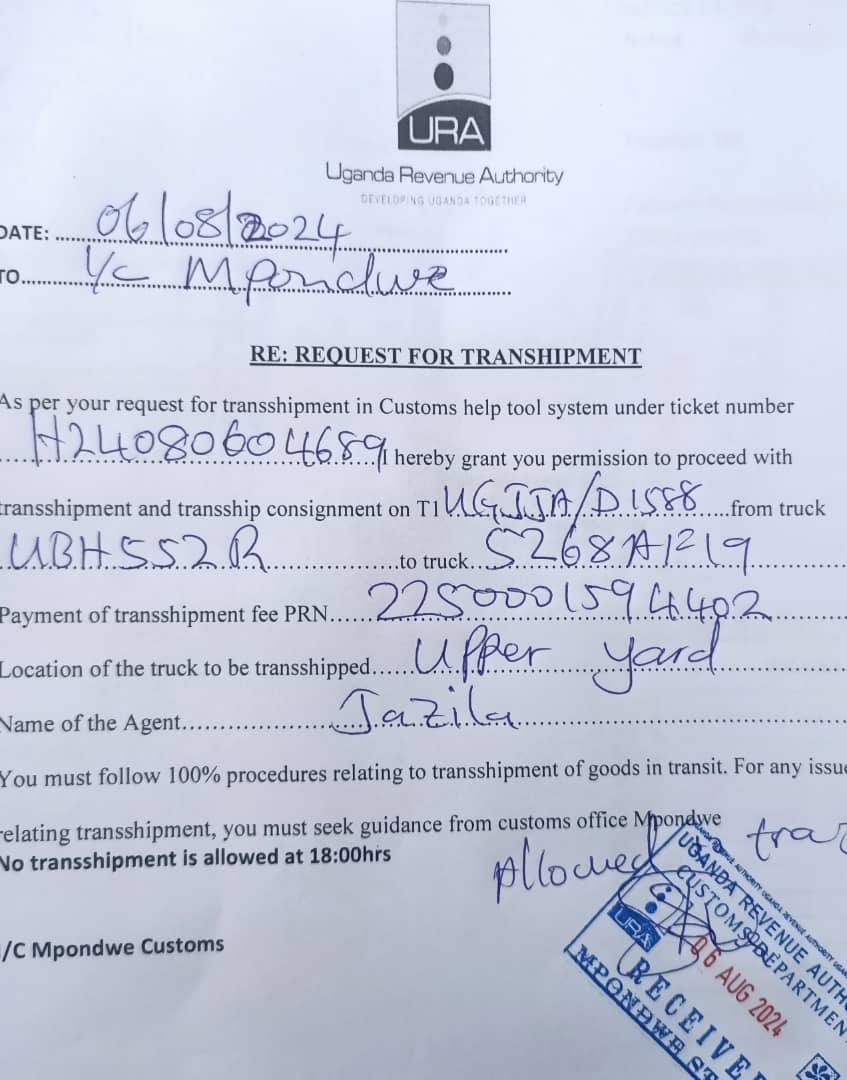 URA
Uganda Revenue Authority
DEVELOPING UGANDA TOGETHER
DATE: 06/08/2024
TO I/C Mpondwe
RE: REQUEST FOR TRANSHIPMENT
As per your request for transshipment in Customs help tool system under ticket number
H24080604689 I hereby grant you permission to proceed with
transshipment and transship consignment on T1 UGJJA/D1588 from truck
UBH552R to truck 5268A1219
Payment of transshipment fee PRN 2250001594402
Location of the truck to be transshipped Upper yard
Name of the Agent Jazila
You must follow 100% procedures relating to transshipment of goods in transit. For any issue
relating transshipment, you must seek guidance from customs office Mpondwe
No transshipment is allowed at 18:00hrs
Allowed tra
I/C Mpondwe Customs
UGANDA REVENUE AUTHO
CUSTOMS DEPARTMEN
URA
06 AUG 2024
RECEIVE
MPONDWE ST